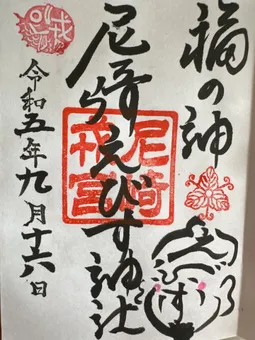 福の神
尼崎えびす神社
尼崎
戎宮
令和五年九月十六日